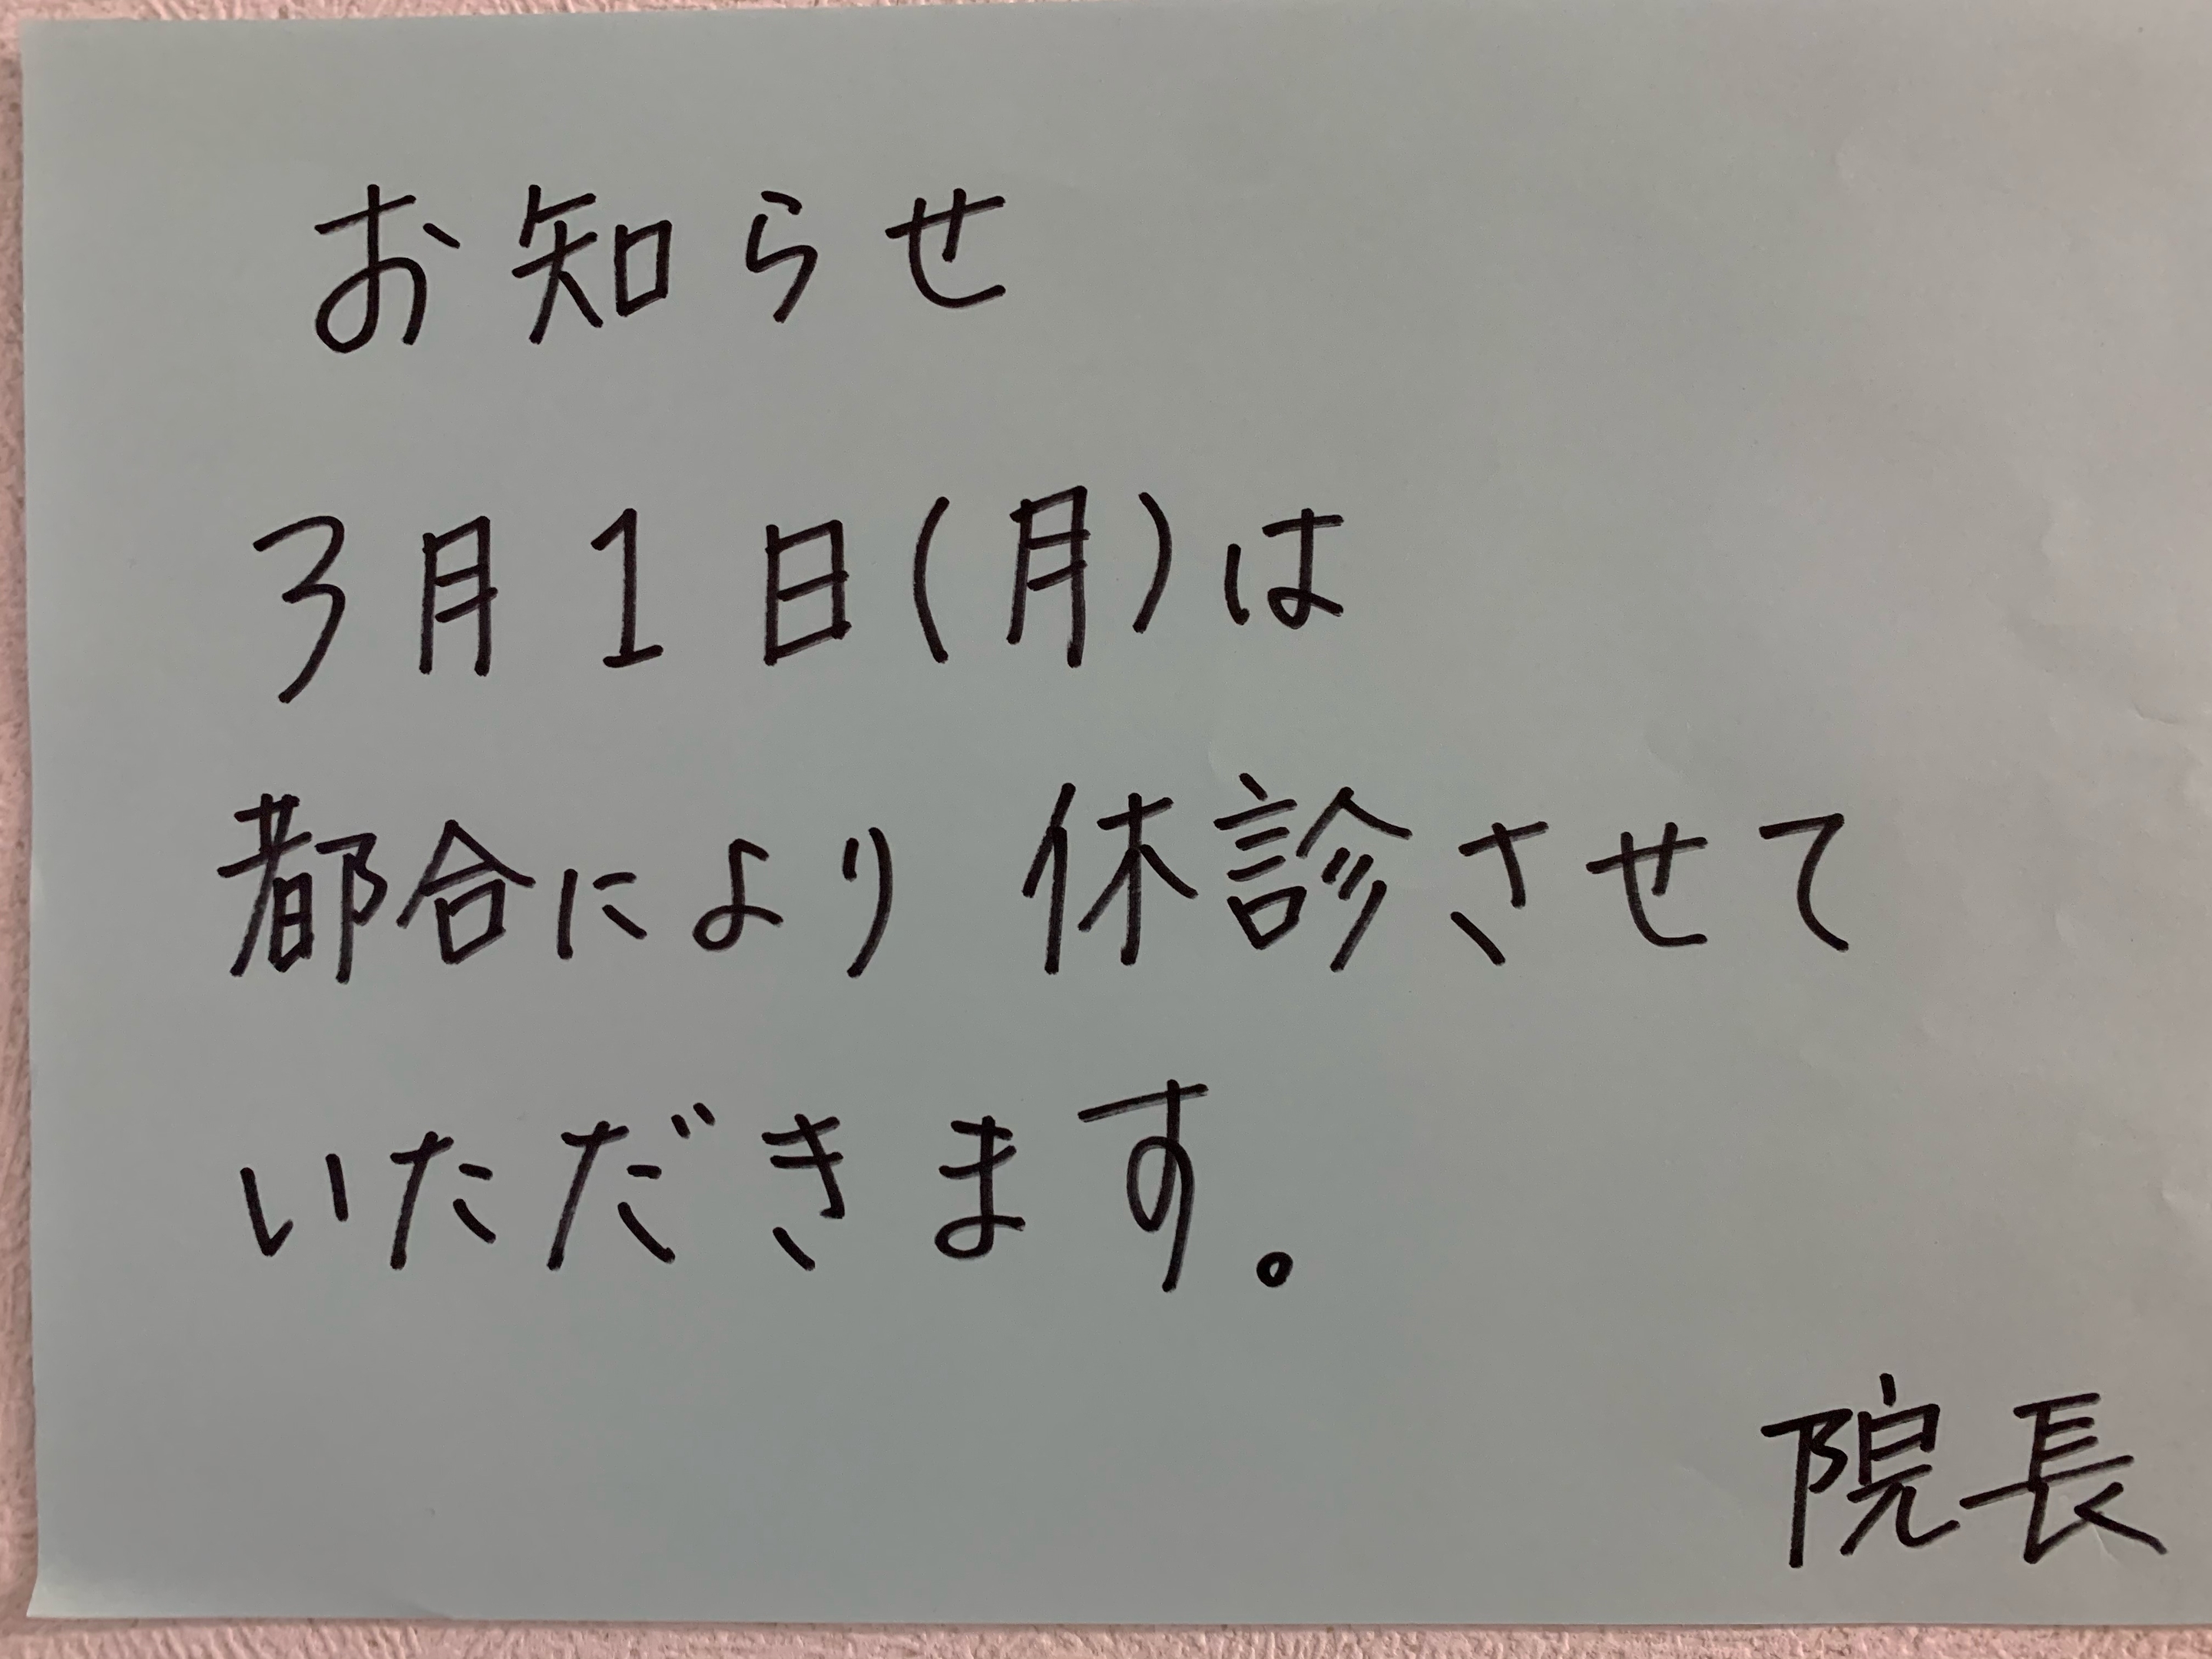 お知らせ
3月1日(月)は
都合により 休診させて
いただきます。
院長